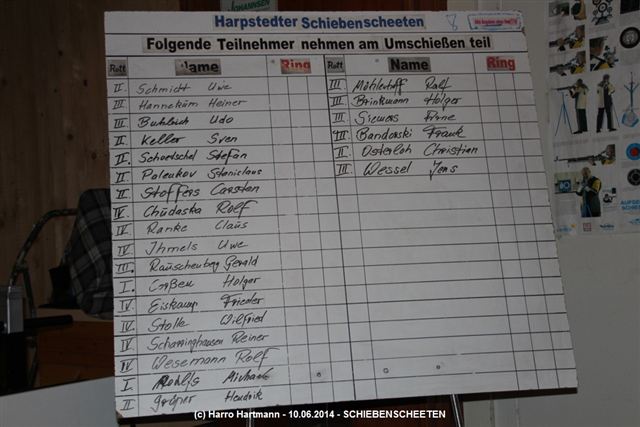 Harpstedter Schiebenscheeten
Folgende Teilnehmer nehmen am Umschießen teil
Rott Name Ring Rott Name Ring
II. Schmidt Uwe
III. Hanneküm Heiner
III. Udo
II. Keller Sven
II. Schoetschel Stefan
II. Poleukov Stanislaus
II. Stoffers Carsten
IV. Chudaska Rolf
IV Ranke Claus
IV Ihmels Uwe
III. Rauschenberg Gerald
I. Holger
IV Eiskamp Frieder
IV. Stolle Wilfried
IV Scharringhausen Reiner
IV Wesemann Rolf
I.
II Hendrik
III. Ralf
III. Brinkmann Holger
III. Siemers Arne
III Bandorski Frank
II. Osterloh Christian
III. Wessel Jens
(c) Harro Hartmann - 10.06.2014 - SCHIEBENSCHEETEN